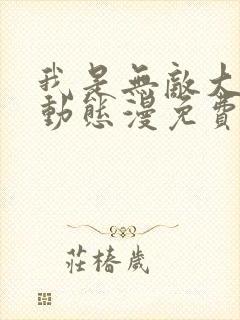 我是無敵大
動態漫免費
莊椿歲